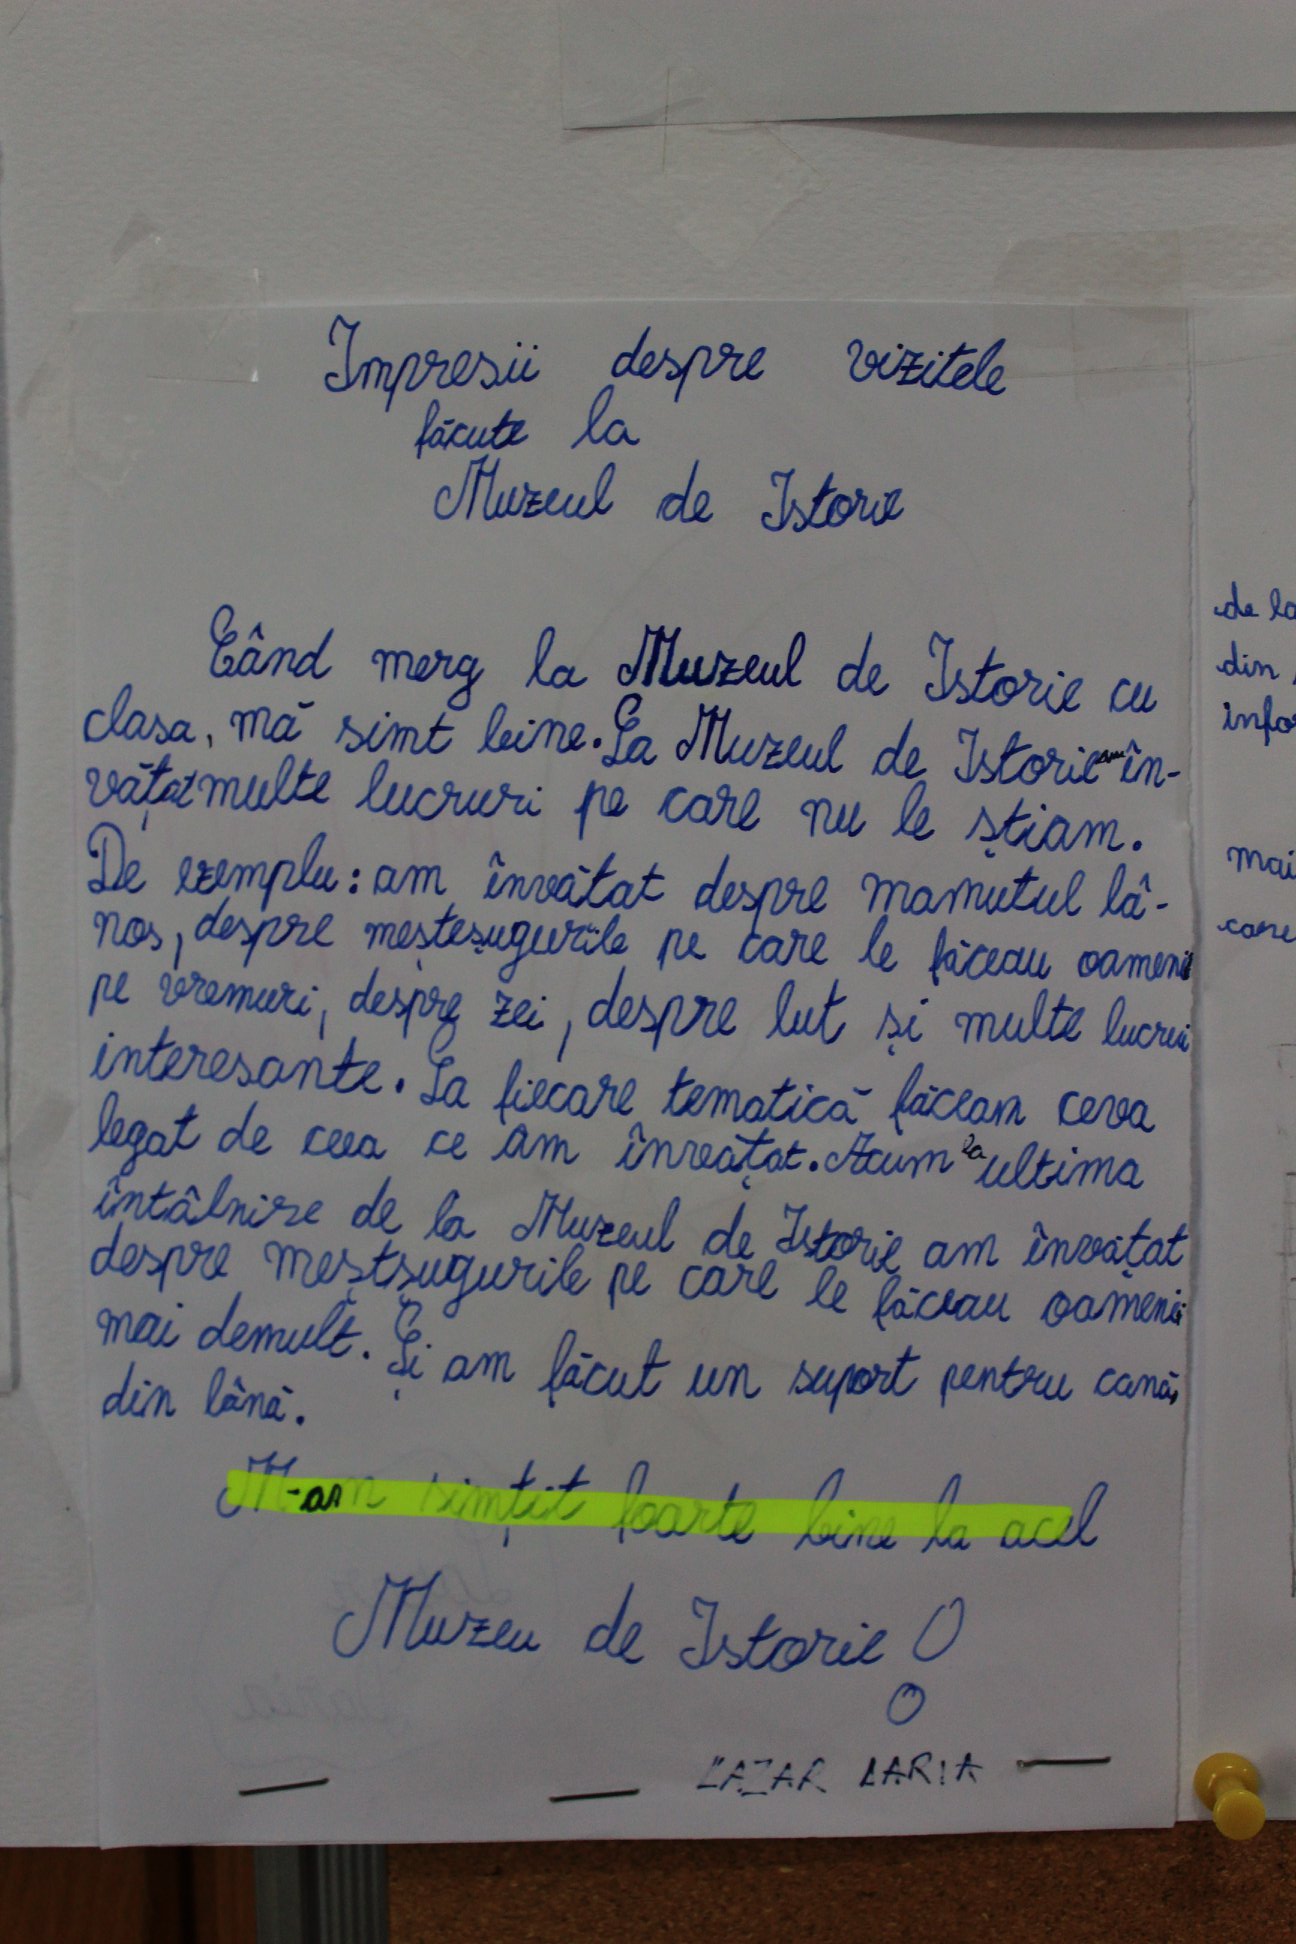 Impresii despre vizitele
făcute la
Muzeul de Istorie
Când merg la Muzeul de Istorie cu
clasa, mă simt bine. La Muzeul de Istorie am în-
vățat multe lucruri pe care nu le știam.
De exemplu: am învătat despre mamutul lâ-
nos, despre meșteșugurile pe care le făceau oamenii
pe vremuri, despre zei, despre lut și multe lucruri
interesante. La fiecare tematică făceam ceva
legat de ceea ce am învățat. Acum la ultima
întâlnire de la Muzeul de Istorie am învățat
despre meștșugurile pe care le făceau oamenii
mai demult. Și am făcut un suport pentru cană,
din lână.
M-am simțit foarte bine la acel
Muzeu de Istorie!
LAZAR DARIA
de la
din
infor
mai
care